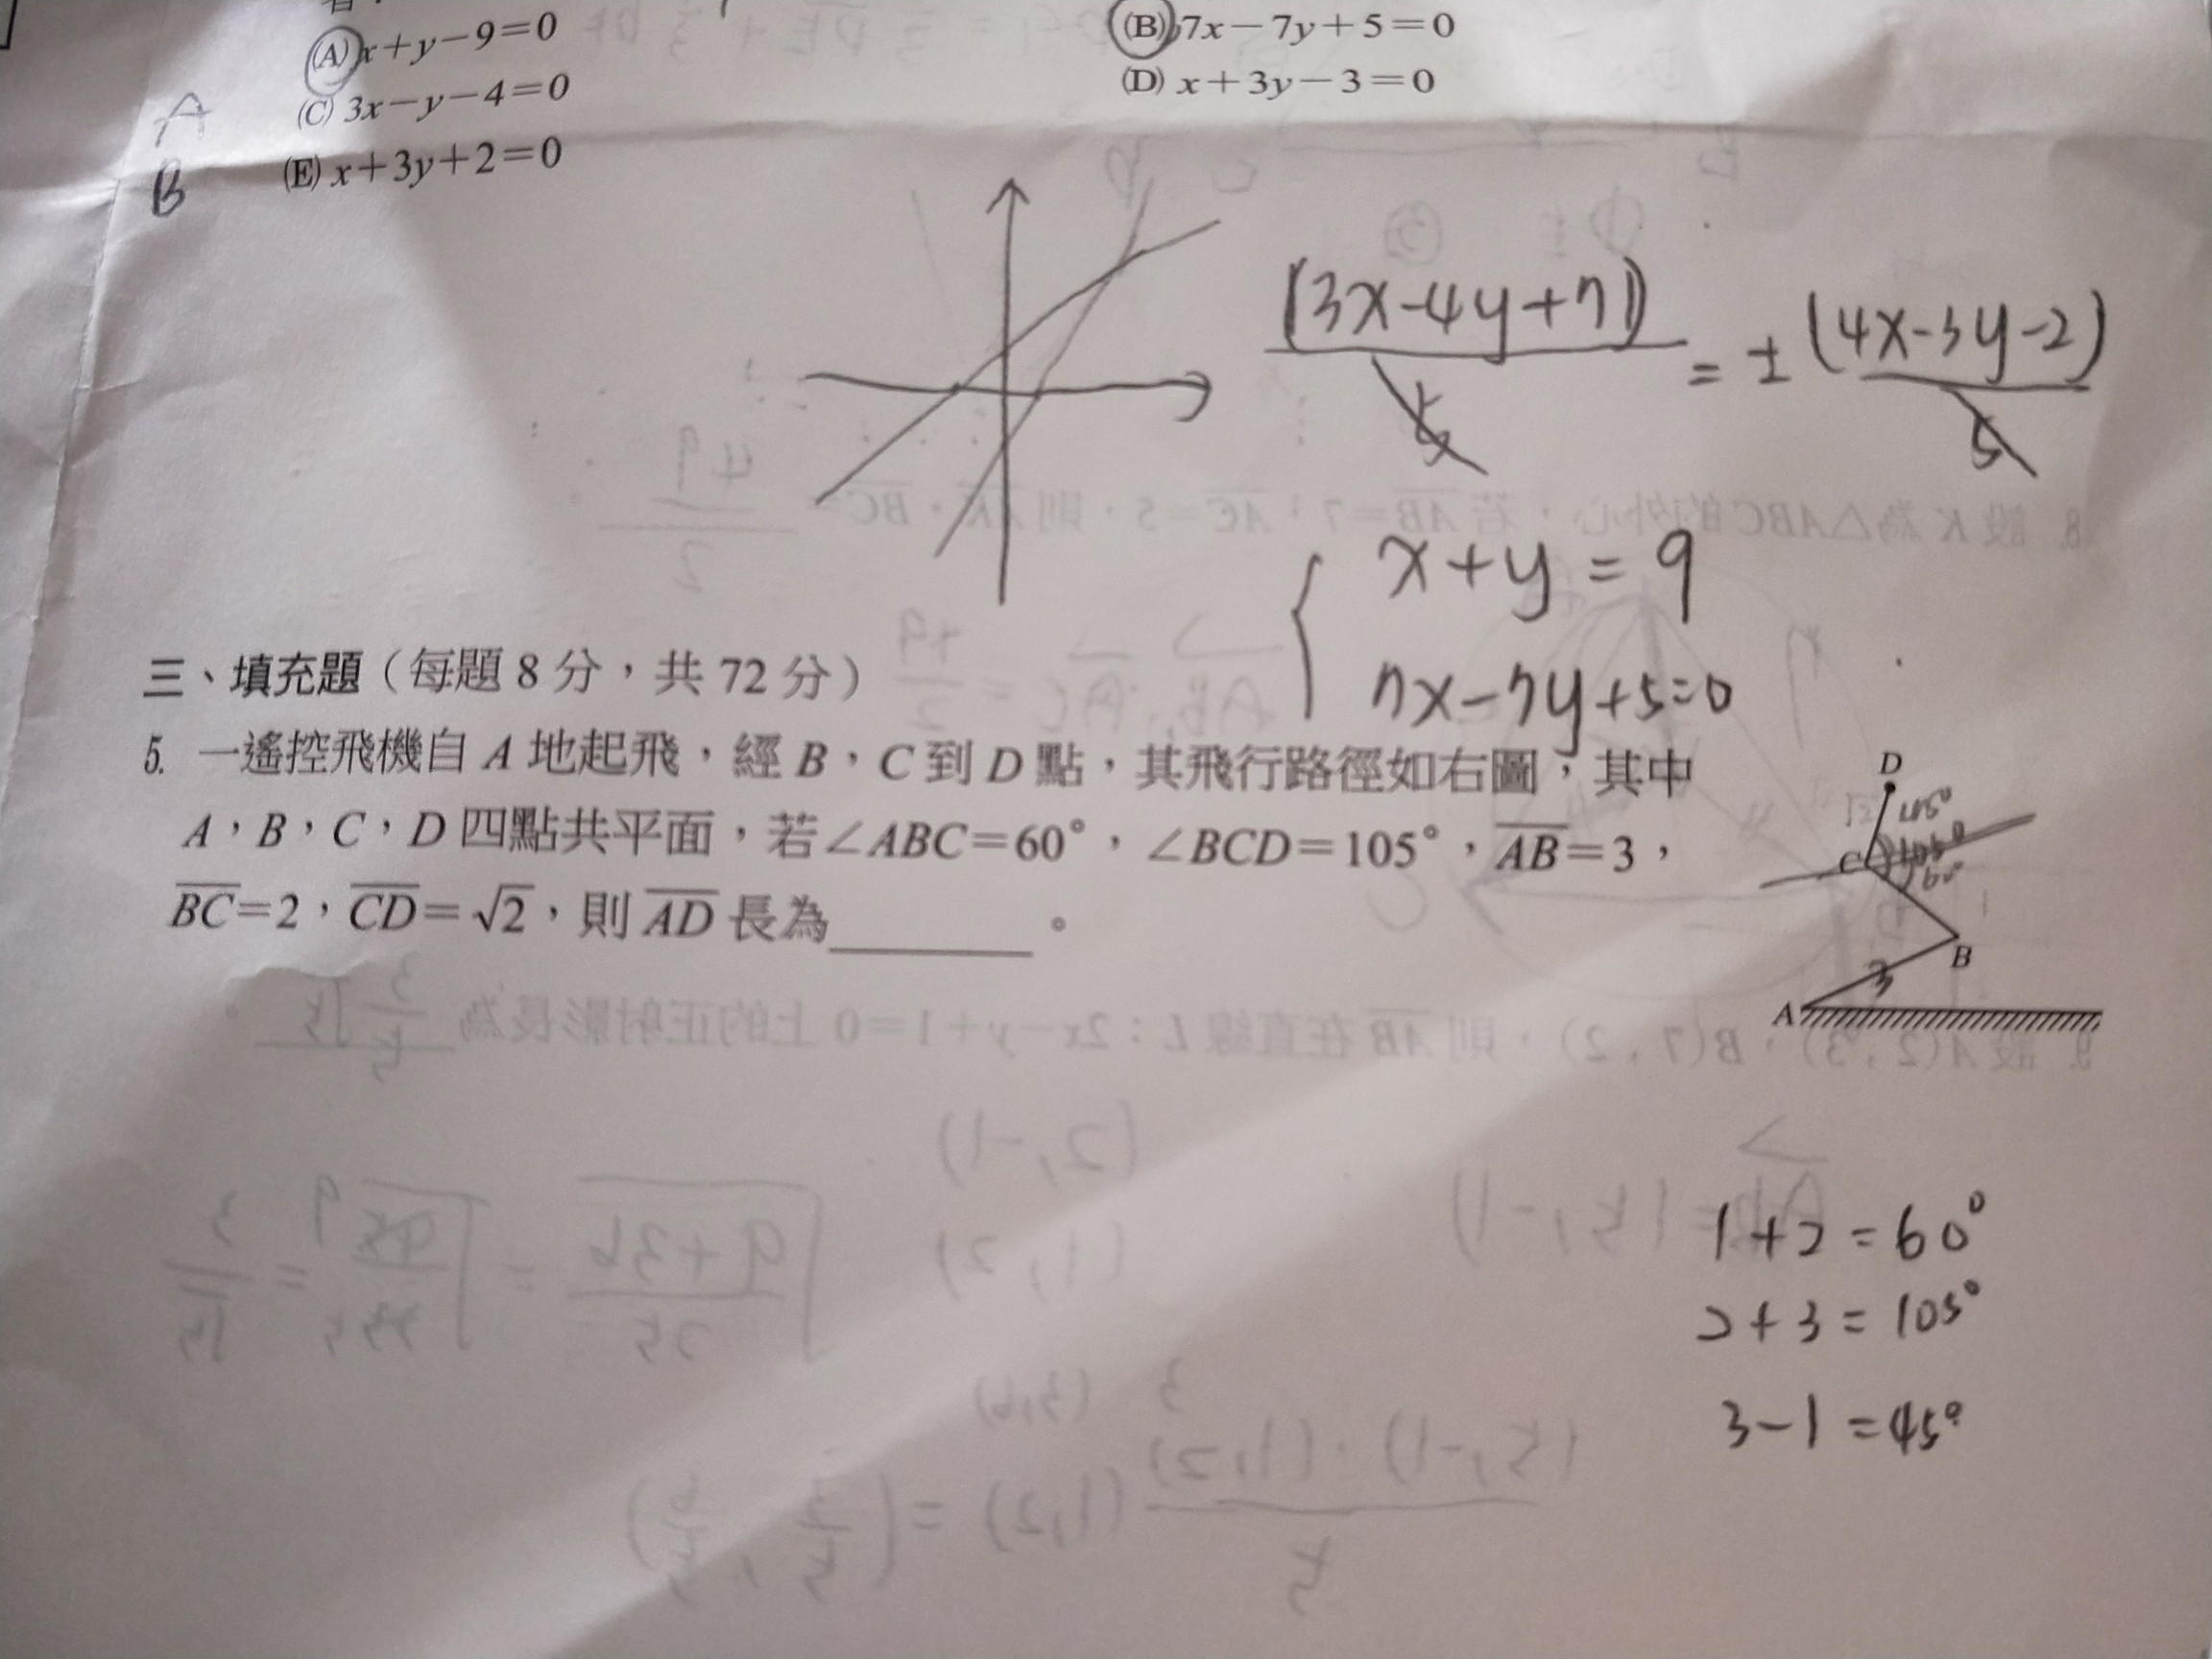 (A) x+y-9=0
(B) 7x-7y+5=0
(C) 3x-y-4=0
(D) x+3y-3=0
A
B
(E) x+3y+2=0
(3x-4y+7)
= ± (4x-3y-2)
5
5
{ x+y=9
7x-7y+5=0
三、填充題(每題 8 分,共 72 分)
5. 一遙控飛機自 A 地起飛,經 B,C 到 D 點,其飛行路徑如右圖,其中
A,B,C,D 四點共平面,若∠ABC=60°,∠BCD=105°,\overline{AB}=3,
\overline{BC}=2,\overline{CD}=√2,則 \overline{AD} 長為______。
D
45°
C
60°
B
3
A
1+2=60°
2+3=105°
3-1=45°